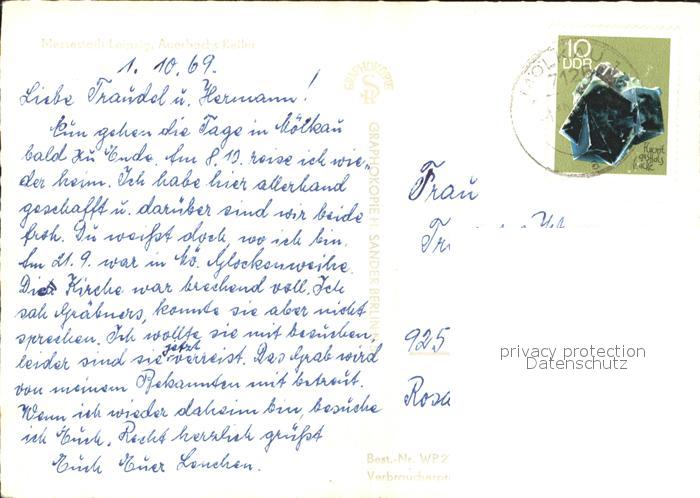 Messestadt Leipzig, Auerbachs Keller
1. 10. 69.
Liebe Traudel u. Hermann!
Nun gehen die Tage in Mölkau
bald zu Ende. Am 8. 10. reise ich wie-
der heim. Ich habe hier allerhand
geschafft u. darüber sind wir beide
froh. Du weißt doch, wo ich bin.
Am 21. 9. war in Mö. Glockenweihe.
Die Kirche war brechend voll. Ich
sah Gräbners, konnte sie aber nicht
sprechen. Ich wollte sie mit besuchen,
leider sind sie jetzt verreist. Das Grab wird
von meinem Bekannten mit betreut.
Wenn ich wieder daheim bin, besuche
ich Euch. Recht herzlich grüßt
Euch Euer Lonchen.
GRAPHOKOPIE
GRAPHOKOPIE H. SANDER BERLIN
Best.-Nr. WP2
Verbraucherpr
10
DDR
MÖLKAU
Frau
925
privacy protection
Datenschutz